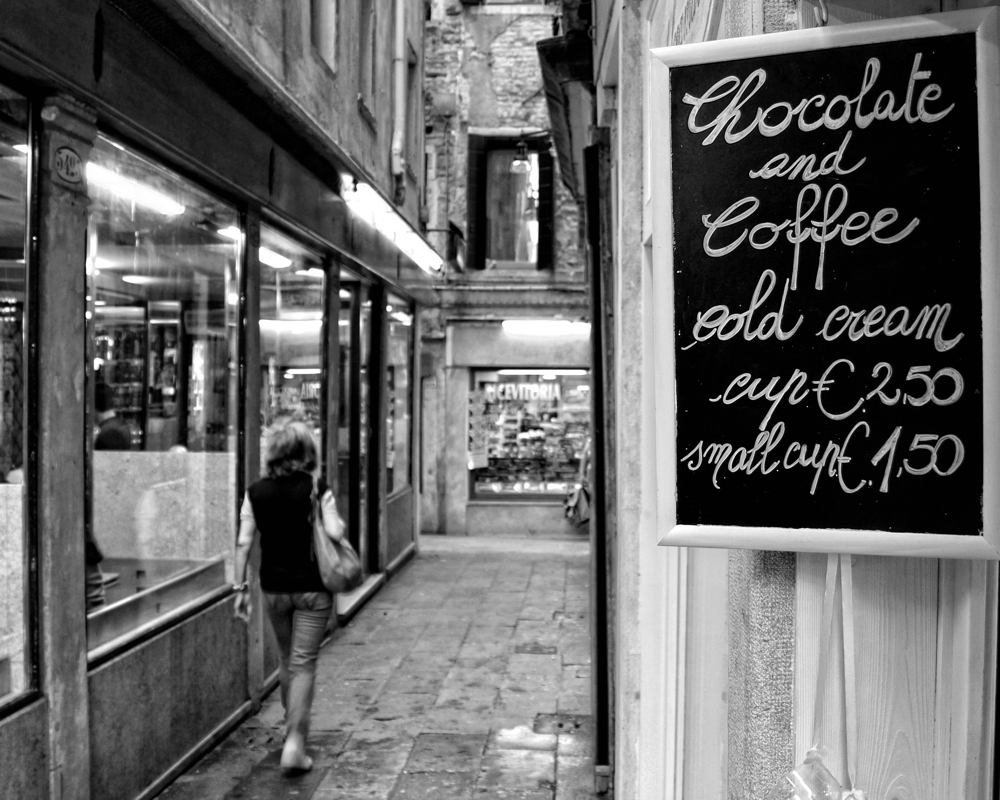 Chocolate
and
Coffee
cold cream
cup € 2,50
small cup € 1,50